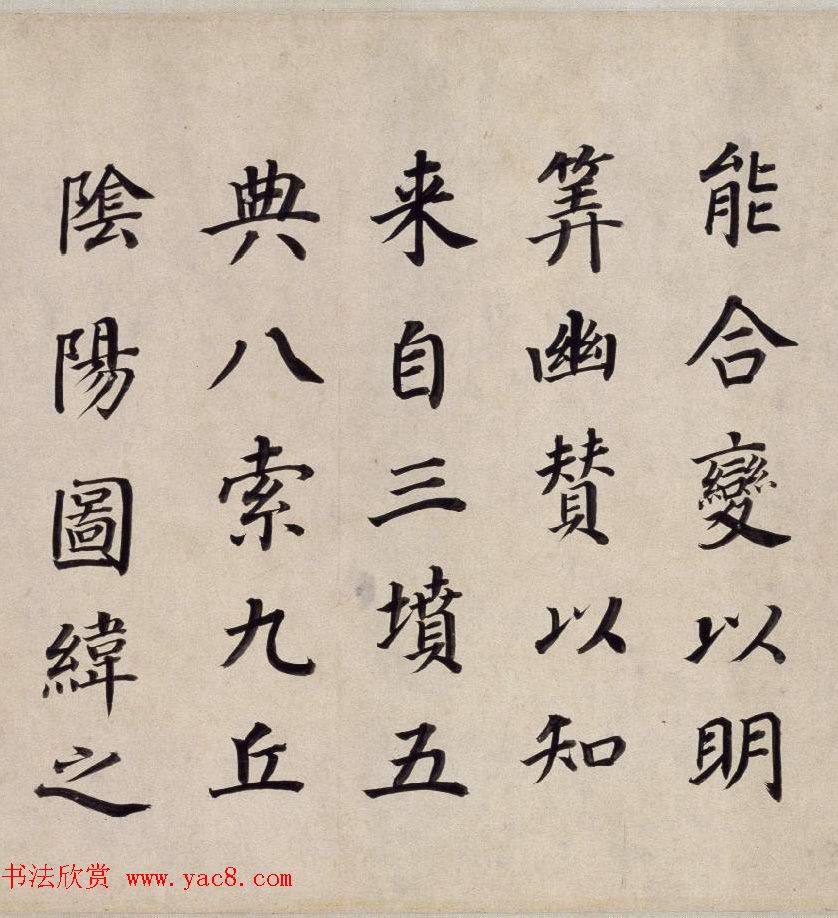 能合變以明
筭幽賛以知
来自三墳五
典八索九丘
陰陽圖緯之
书法欣赏 www.yac8.com